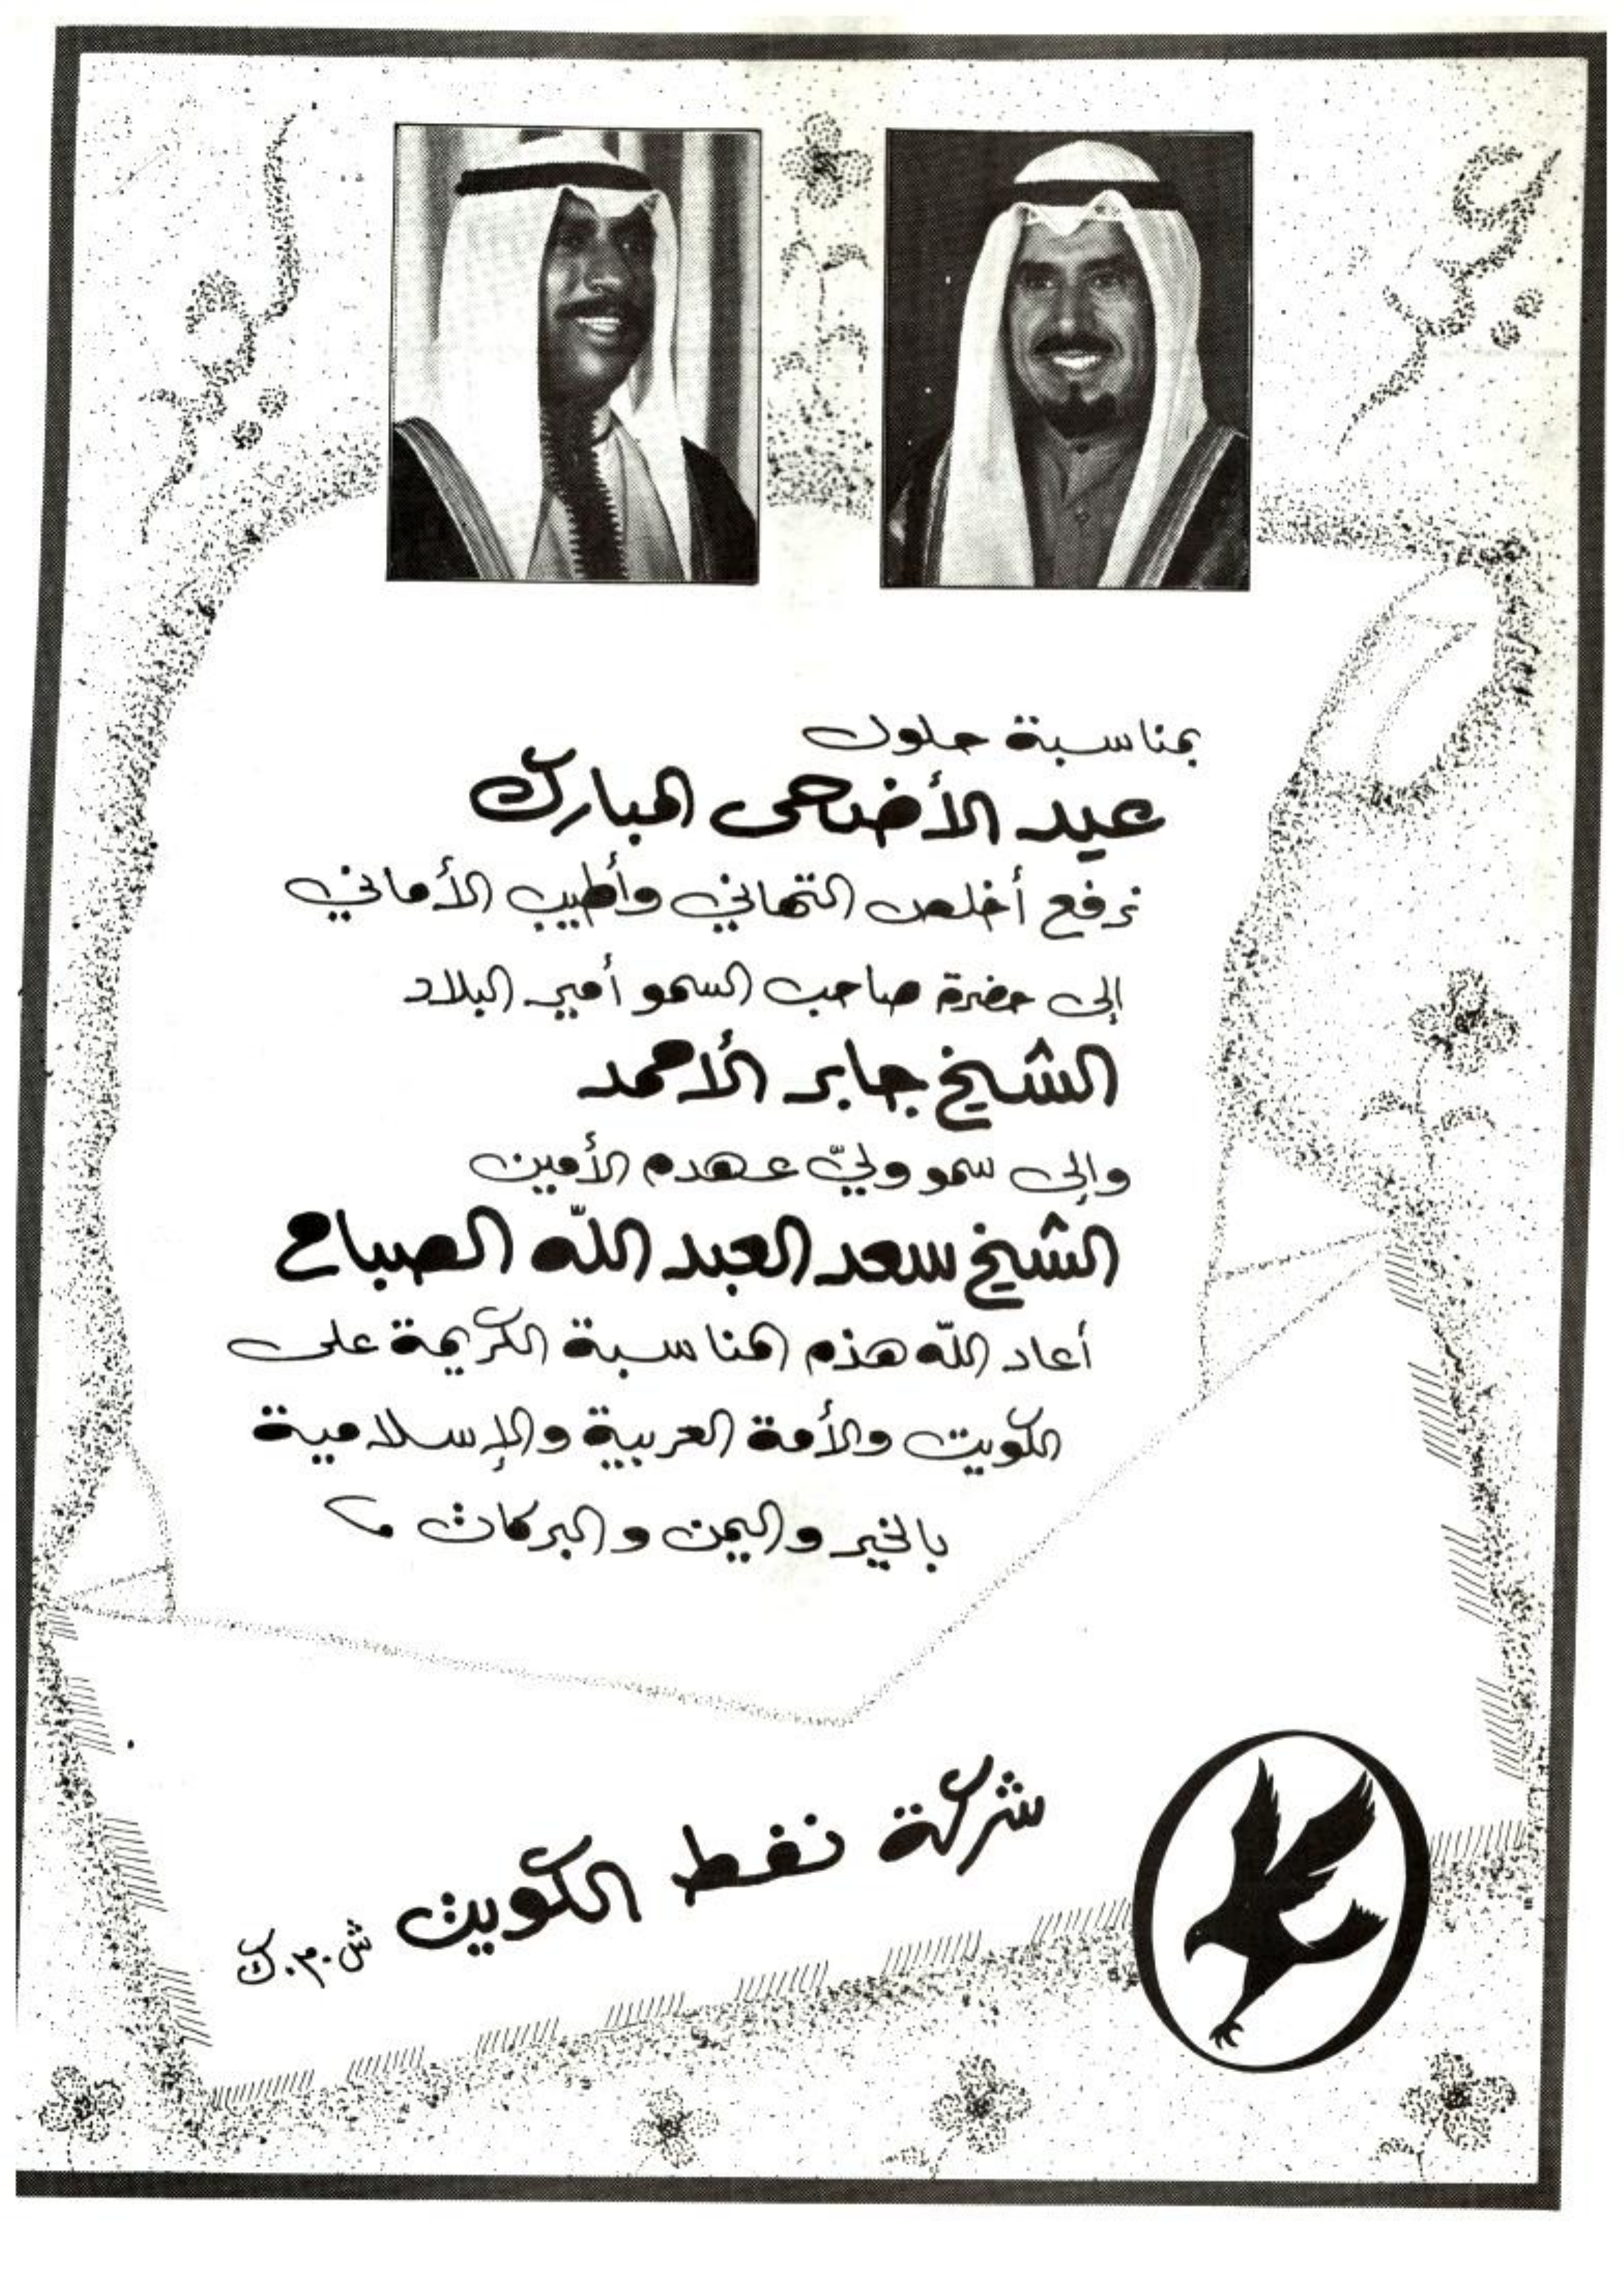 بمناسبة حلول
عيد الأضحى المبارك
نرفع أخلص التهاني وأطيب الأماني
إلى حضرة صاحب السمو أمير البلاد
الشيخ جابر الأحمد
وإلى سمو وليّ عهده الأمين
الشيخ سعد العبد اللّه الصباح
أعاد اللّه هذه المناسبة الكريمة على
الكويت والأمة العربية والإسلامية
بالخير واليمن والبركات
شركة نفط الكويت ش.م.ك